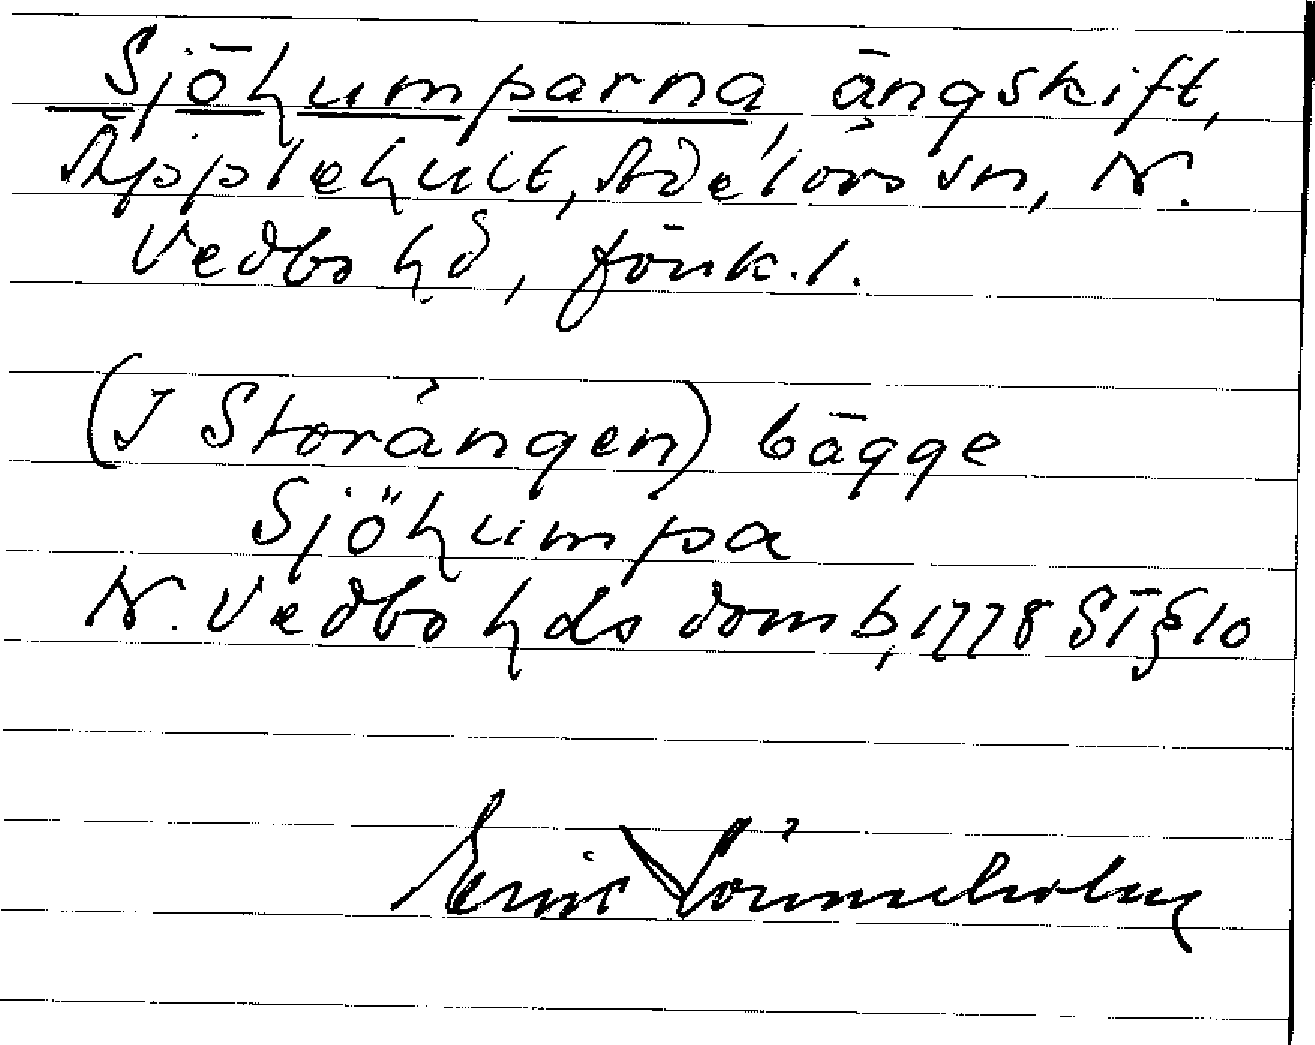 Sjöhumparna, ängskift,
Äpplehult, Adelövs sn, N.
Vedbo hd, Jönk. l.
(I Storängen) bägge
Sjöhumpa
N. Vedbo hds domb, 1778 ST § 10